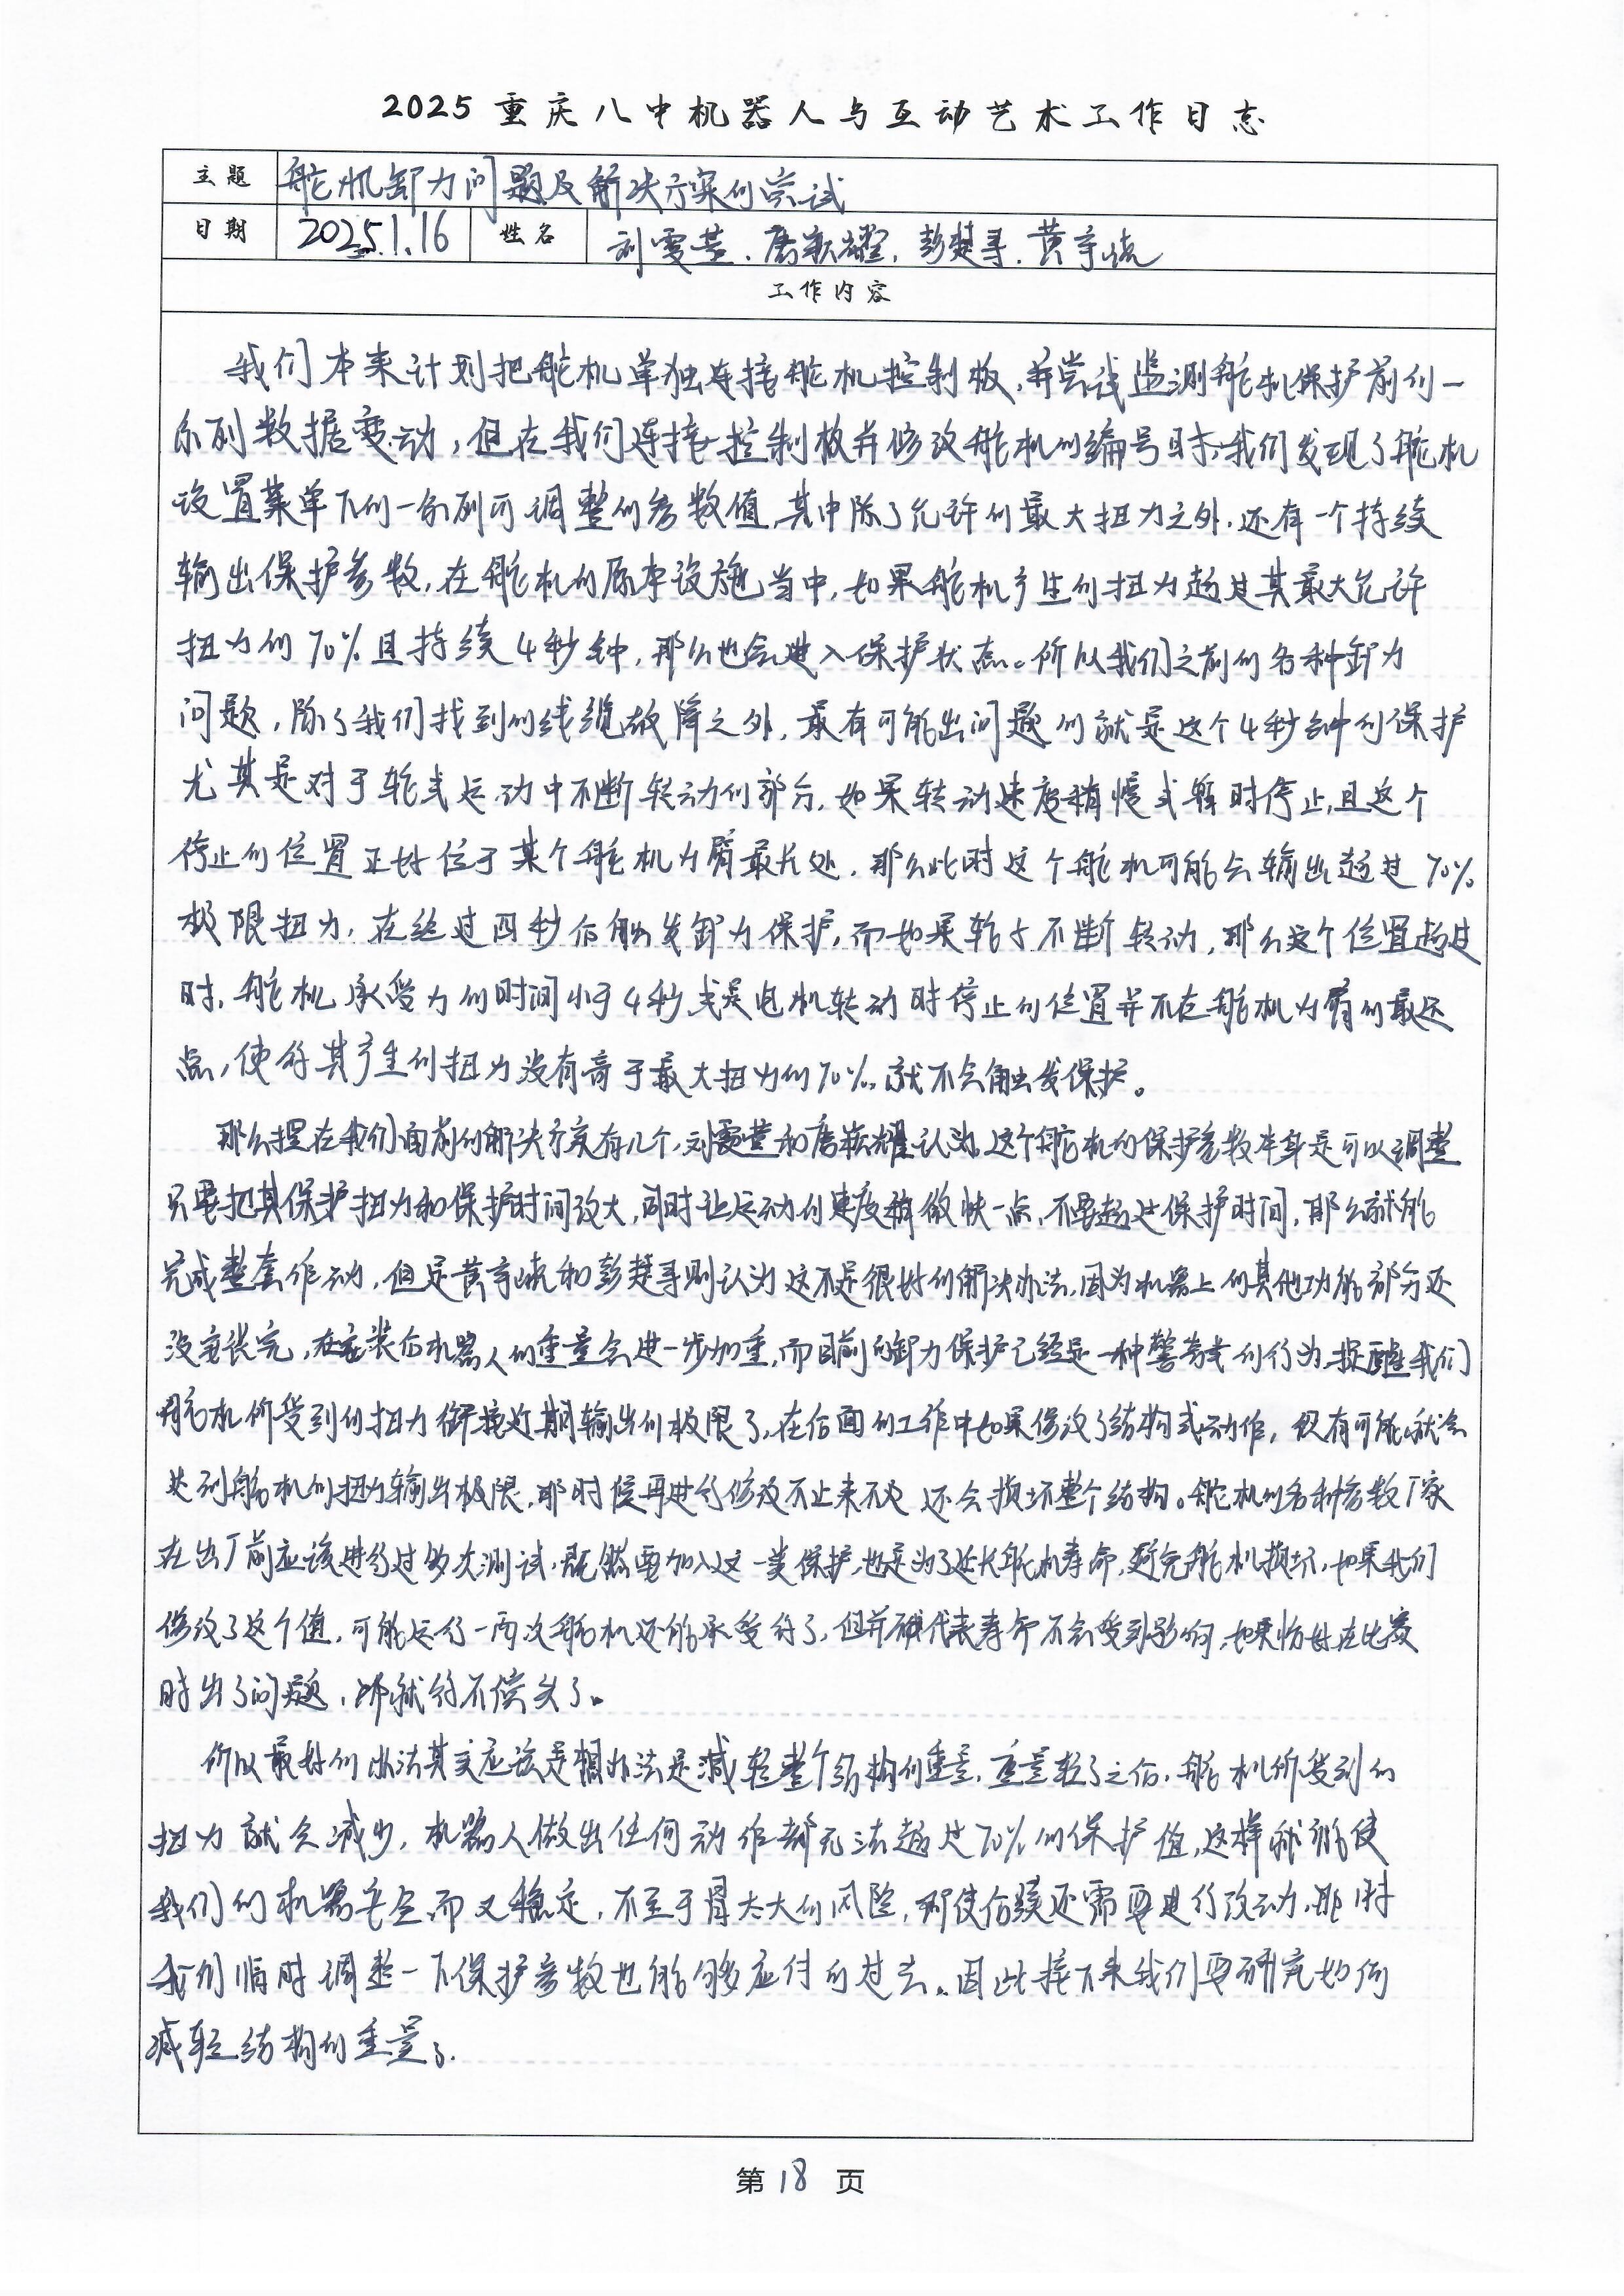 2025重庆八中机器人与互动艺术工作日志
主题 舵机卸力问题及解决方案的尝试
日期 2025.1.16 姓名 刘雯萱.唐歆耀.彭楚寻.黄宇
工作内容
我们本来计划把舵机单独连接舵机控制板,并尝试监测舵机保护前的一
系列数据变动,但在我们连接控制板并修改舵机的编号时,我们发现了舵机
设置菜单下的一系列可调整的参数值,其中除了允许的最大扭力之外,还有一个持续
输出保护参数,在舵机的原本设施当中,如果舵机产生的扭力超过其最大允许
扭力的70%且持续4秒钟,那么也会进入保护状态。所以我们之前的各种卸力
问题,除了我们找到的线缆故障之外,最有可能出问题的就是这个4秒钟的保护
尤其是对于轮式运动中不断转动的部分,如果转动速度稍慢或暂时停止,且这个
停止的位置正好位于某个舵机力臂最长处,那么此时这个舵机可能会输出超过70%
极限扭力,在经过四秒后触发卸力保护,而如果轮子不断转动,那么这个位置超过
时,舵机承受力的时间小于4秒,或是电机转动时停止的位置并不在舵机力臂的最远
点,使得其产生的扭力没有高于最大扭力的70%,就不会触发保护。
那么摆在我们面前的解决方案有几个,刘雯萱和唐歆耀认为,这个舵机的保护参数本身是可以调整
只要把其保护扭力和保护时间改大,同时让运动的速度稍微快一点,不要超过保护时间,那么就能
完成整套作动,但是黄宇和彭楚寻则认为这不是很好的解决办法,因为机器上的其他功能部分还
没安装完,在安装后机器人的重量会进一步加重,而目前的卸力保护已经是一种警告式的行为,提醒我们
舵机所受到的扭力都接近其输出的极限了,在后面的工作中如果修改了结构或动作,很有可能就会
达到舵机的扭力输出极限,那时候再进行修改不止来不及 还会损坏整个结构。舵机的各种参数厂家
在出厂前应该进行过多次测试,既然要加入这一类保护,也是为了延长舵机寿命,避免舵机损坏,如果我们
修改了这个值,可能运行一两次舵机还能承受得了,但并不代表寿命不会受到影响,如果恰好在比赛
时出了问题,那就得不偿失了。
所以最好的办法其实应该是想办法是减轻整个结构的重量,重量轻了之后,舵机所受到的
扭力就会减少,机器人做出任何动作都无法超过70%的保护值,这样就能使
我们的机器安全而又稳定,不至于冒太大的风险,即使后续还需要进行改动,那时
我们临时调整一下保护参数也能够应付的过去。因此接下来我们要研究如何
减轻结构的重量了.
第18页